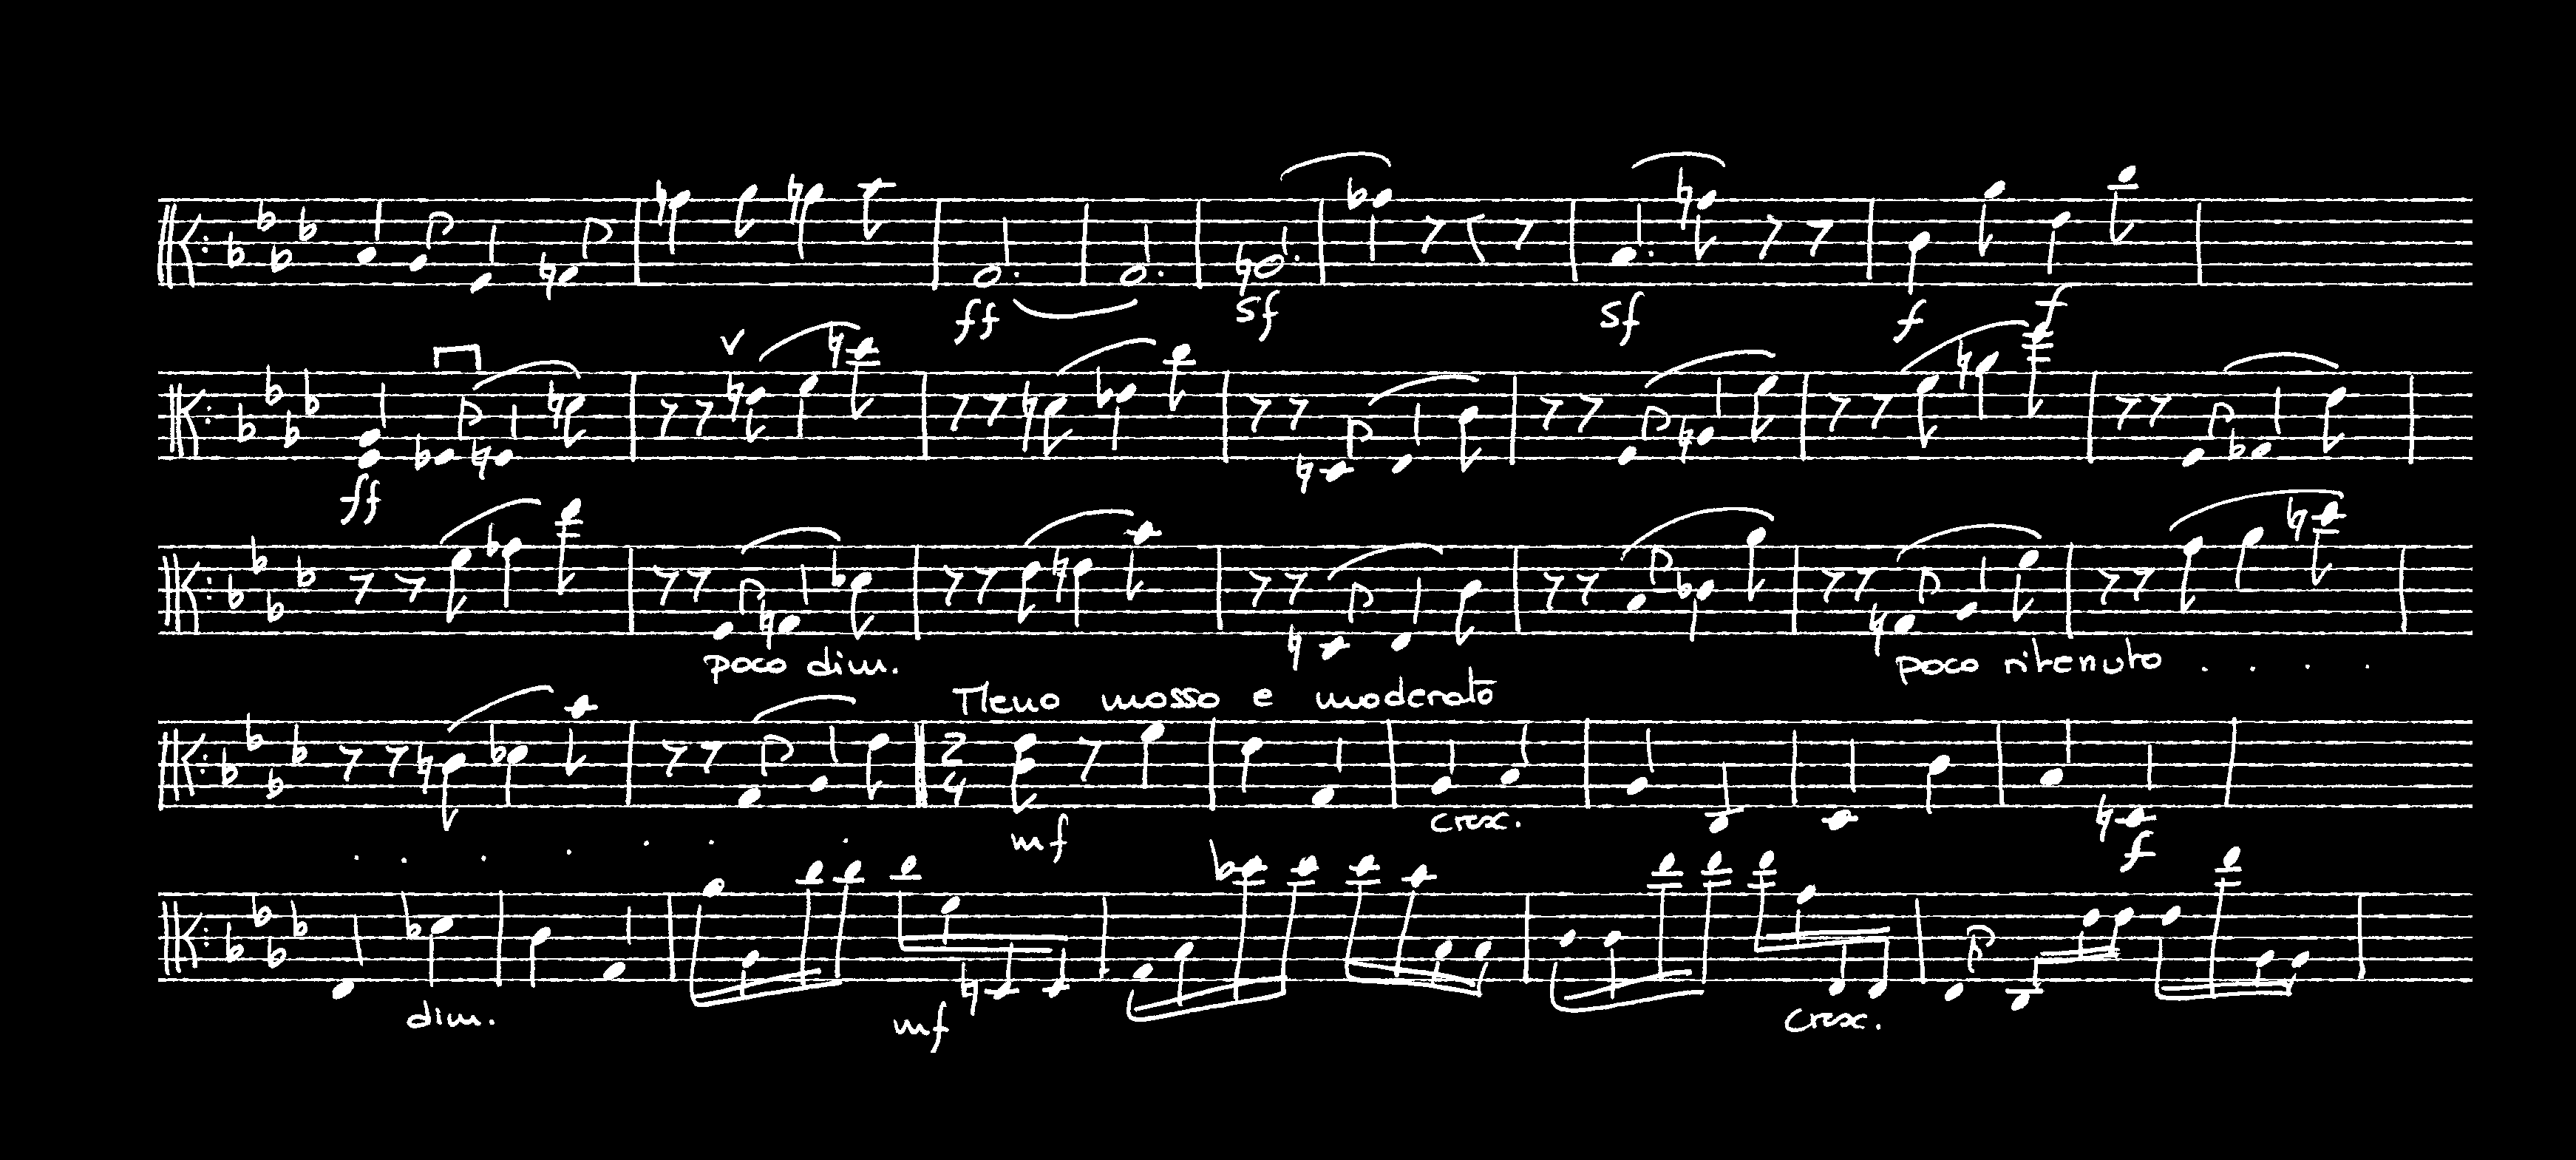 ff sf sf f f
v
ff
poco dim. poco ritenuto . . . .
Meno mosso e moderato
2 4
mf cresc. f
. . . . . . .
dim. mf cresc.